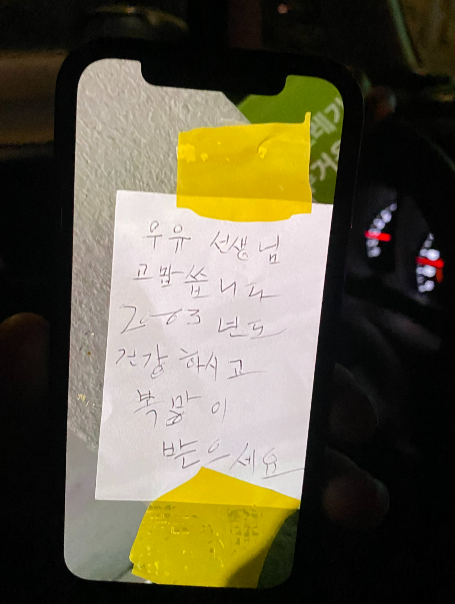 우유 선생님
고맙씁니다
2023 년도
건강 하시고
복 많이
받으세요